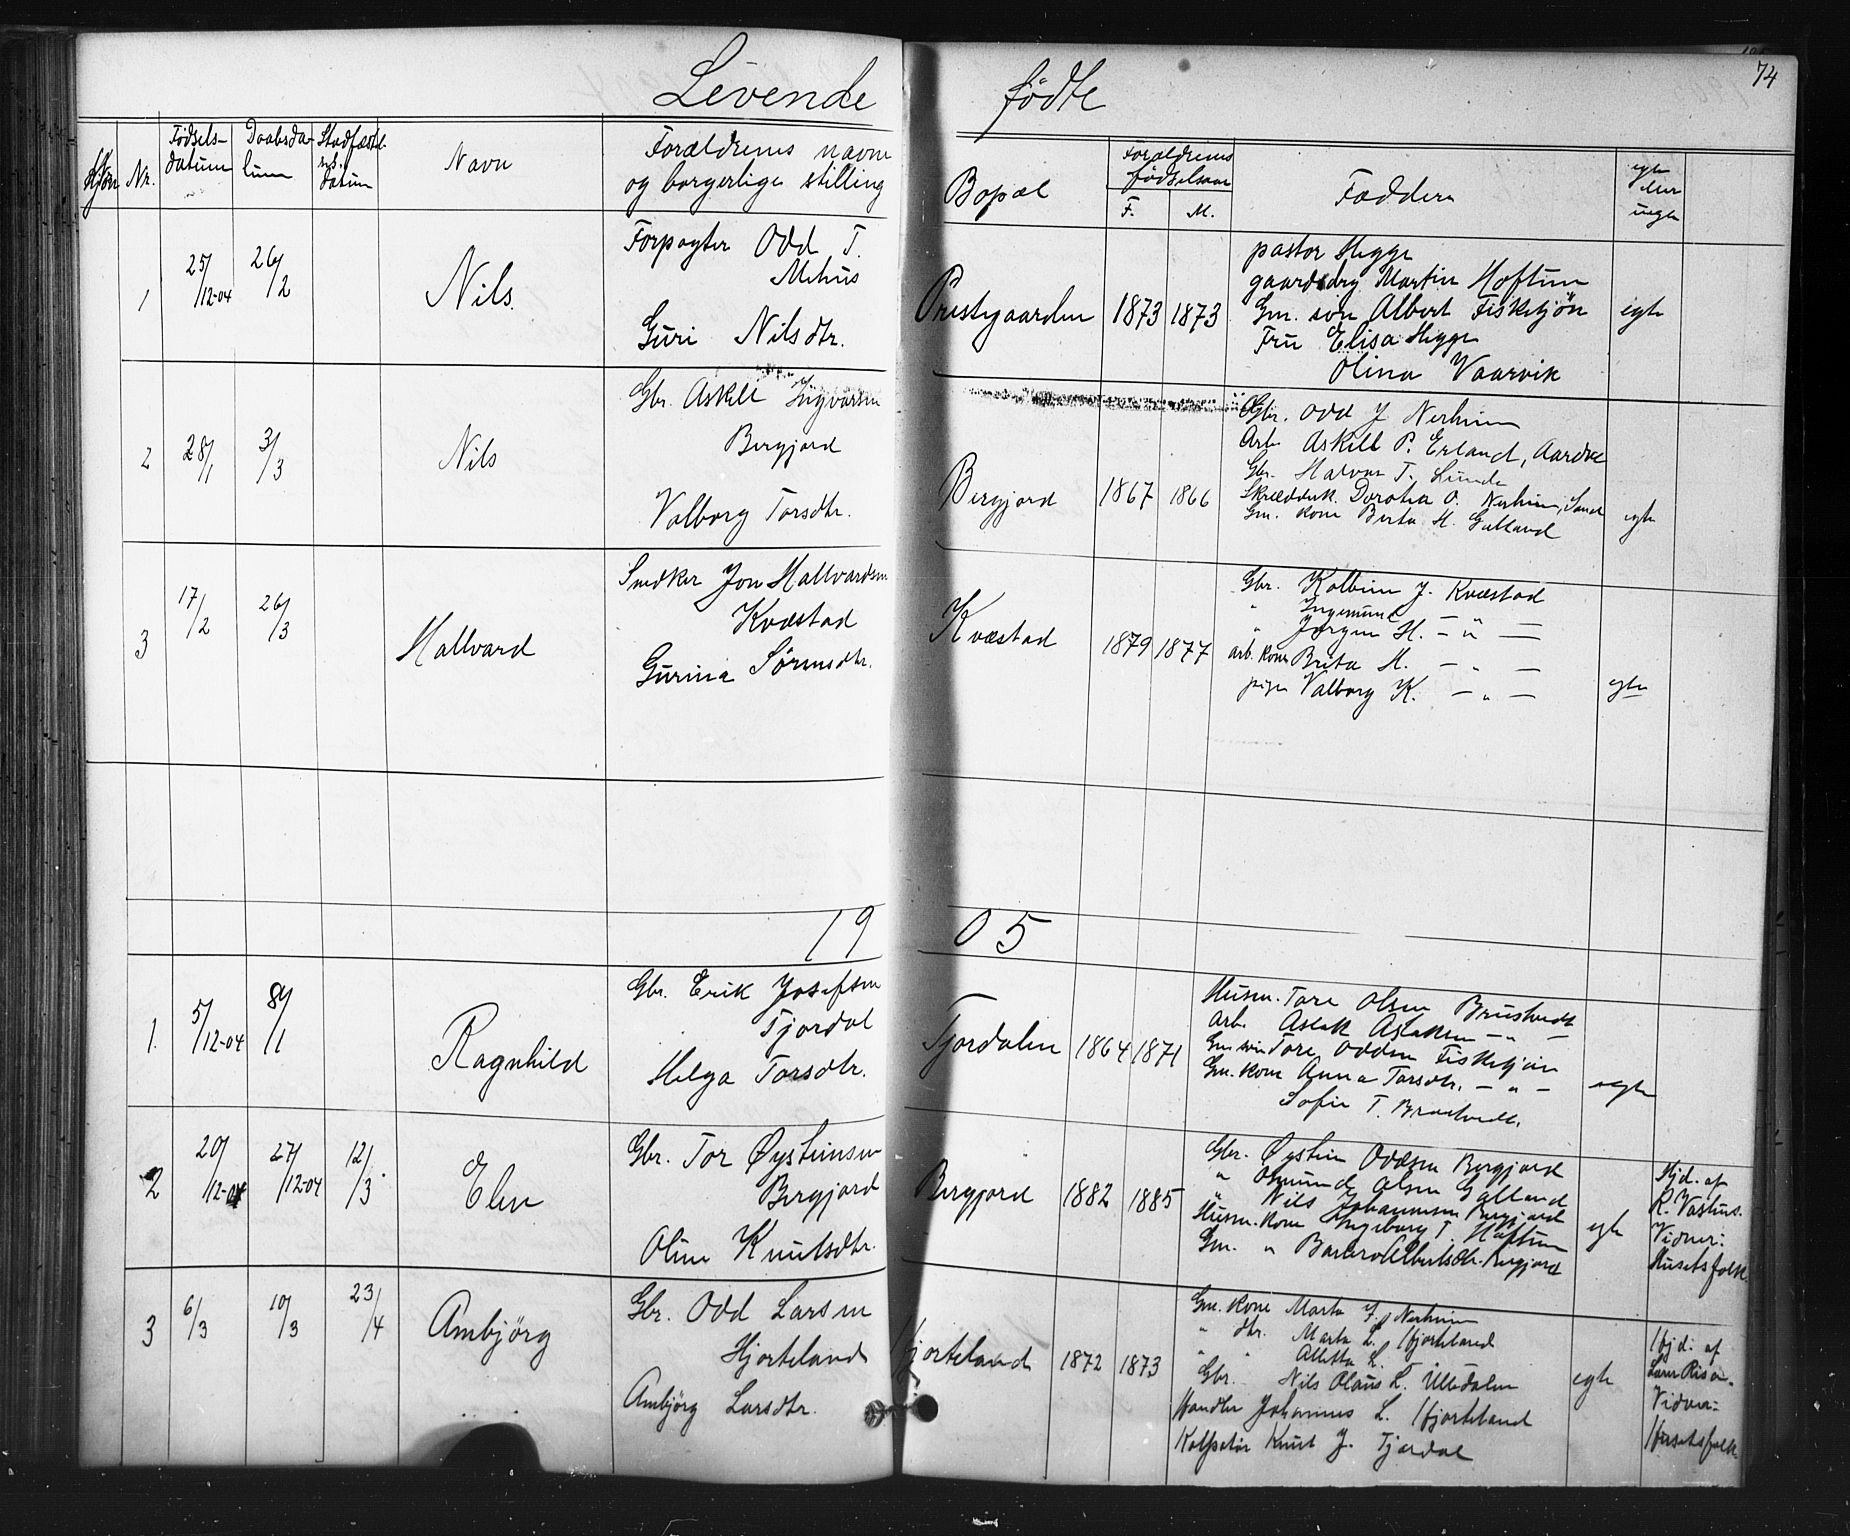 74
Levende fødte
Kjøn
Nr.
Fødsels-
datum
Daabsda-
tum
Stadfæstel.
datum
Navn
Forældrenes navne
og borgerlige stilling
Bopæl
Forældrenes
fødselsaar
F. M.
Faddere
egte
eller
uegte
1
25/12-04
26/2
Nils.
Forpagter Odd T.
Mehus
Guri Nilsdtr.
Prestegaarden
1873 1873
pastor Hegge
gaardsbrg Martin Hoftun
Gm. søn Albert Fisketjøn
Fru Elisa Hegge
Olina Vaarvik
egte
2
28/1
3/3
Nils
Gbr. Askell Ingvarsen
Bergjord
Valborg Torsdtr.
Bergjord
1867 1866
Gbr. Odd J Nerheim
Arb. Askell P. Erland, Aardal
Gbr. Halvor T. Lunde
Skrædderk. Dorotea O. Nerheim, Sand
Gm. kone Berta H. Galland
egte
3
17/2
26/3
Hallvard
Snedker Jon Hallvardsen
Kvæstad
Gurina Sørensdtr.
Kvæstad
1879 1877
Gbr. Kolbein J. Kvæstad
" Ingemund — " —
" Jørgen H. — " —
arb. kone Brita H. — " —
pige Valborg K. — " —
egte
1905
1.
5/12-04
8/1
Ragnhild
Gbr. Erik Josefsen
Tjordal
Helga Torsdtr.
Tjordalen
1864 1871
Husm. Tore Olsen Brustveit
Arb. Aslak Aslaksen — " —
Gm søn Tore Oddsen Fisketjøn
Gm. kone Anna Torsdtr. — " —
Sofie T. Brustveit.
egte
2
20/12-04
27/12-04
12/3
Elen
Gbr. Tor Øysteinsen
Bergjord
Oline Knutsdtr.
Bergjord
1882 1885
Gbr. Øystein Oddsen Bergjord
" Osmund Olsen Galland
" Nils Johannesen Bergjord
Husm. kone Ingeborg T. Hoftun
Gm. " Albertsdtr. Bergjord
egte
Hjd. af
R. Vastus.
Vidner:
Husetsfolk
3
6/3
10/3
23/4
Ambjørg
Gbr. Odd Larsen
Hjorteland
Ambjørg Larsdtr.
Hjorteland
1872 1873
Gm. kone Marta J. Nerheim
" dtr. Marta L. Hjorteland
" " Alletta L. "
Gbr. Nils Olaus L. Ulledalen
Handler Johannes L. Hjorteland
Kolpotør Knut J. Tjordal
egte
Hjd. af
Lærer Risa.
Vidner:
Husetsfolk